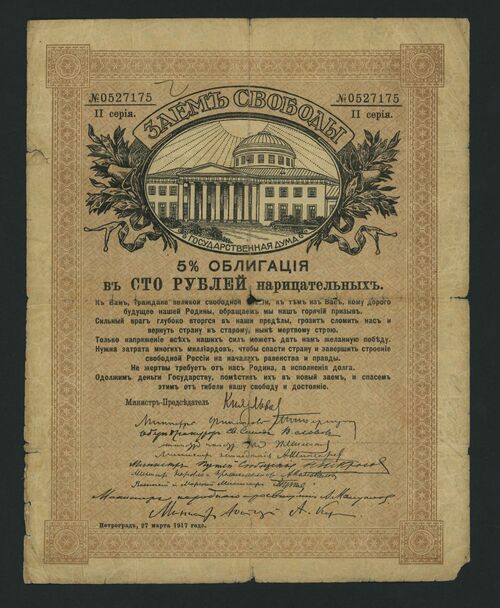 №0527175
II серія.
№0527175
II серія.
ЗАЕМЪ СВОБОДЫ
ГОСУДАРСТВЕННАЯ ДУМА
5% ОБЛИГАЦІЯ
въ СТО РУБЛЕЙ нарицательныхъ.
Къ Вамъ, Граждане великой свободной къ тѣмъ изъ Васъ, кому дорого
будущее нашей Родины, обращаемъ мы нашъ горячій призывъ.
Сильный врагъ глубоко вторгся въ наши предѣлы, грозитъ сломить насъ и
вернуть страну къ старому, нынѣ мертвому строю.
Только напряженіе всѣхъ нашихъ силъ можетъ дать намъ желанную побѣду.
Нужна затрата многихъ милліардовъ, чтобы спасти страну и завершить строеніе
свободной Россіи на началахъ равенства и правды.
Не жертвы требуетъ отъ насъ Родина, а исполненія долга.
Одолжимъ деньги Государству, помѣстивъ ихъ въ новый заемъ, и спасемъ
этимъ отъ гибели нашу свободу и достояніе.
Министръ-Предсѣдатель Кн Львов
Министръ финансовъ
Министръ земледѣлія
Министръ Путей Сообщенія
Военный и Морской Министръ
Министръ народнаго просвѣщенія А. Мануйлов
Министръ Юстиціи А. Кер
Петроградъ, 27 марта 1917 года.